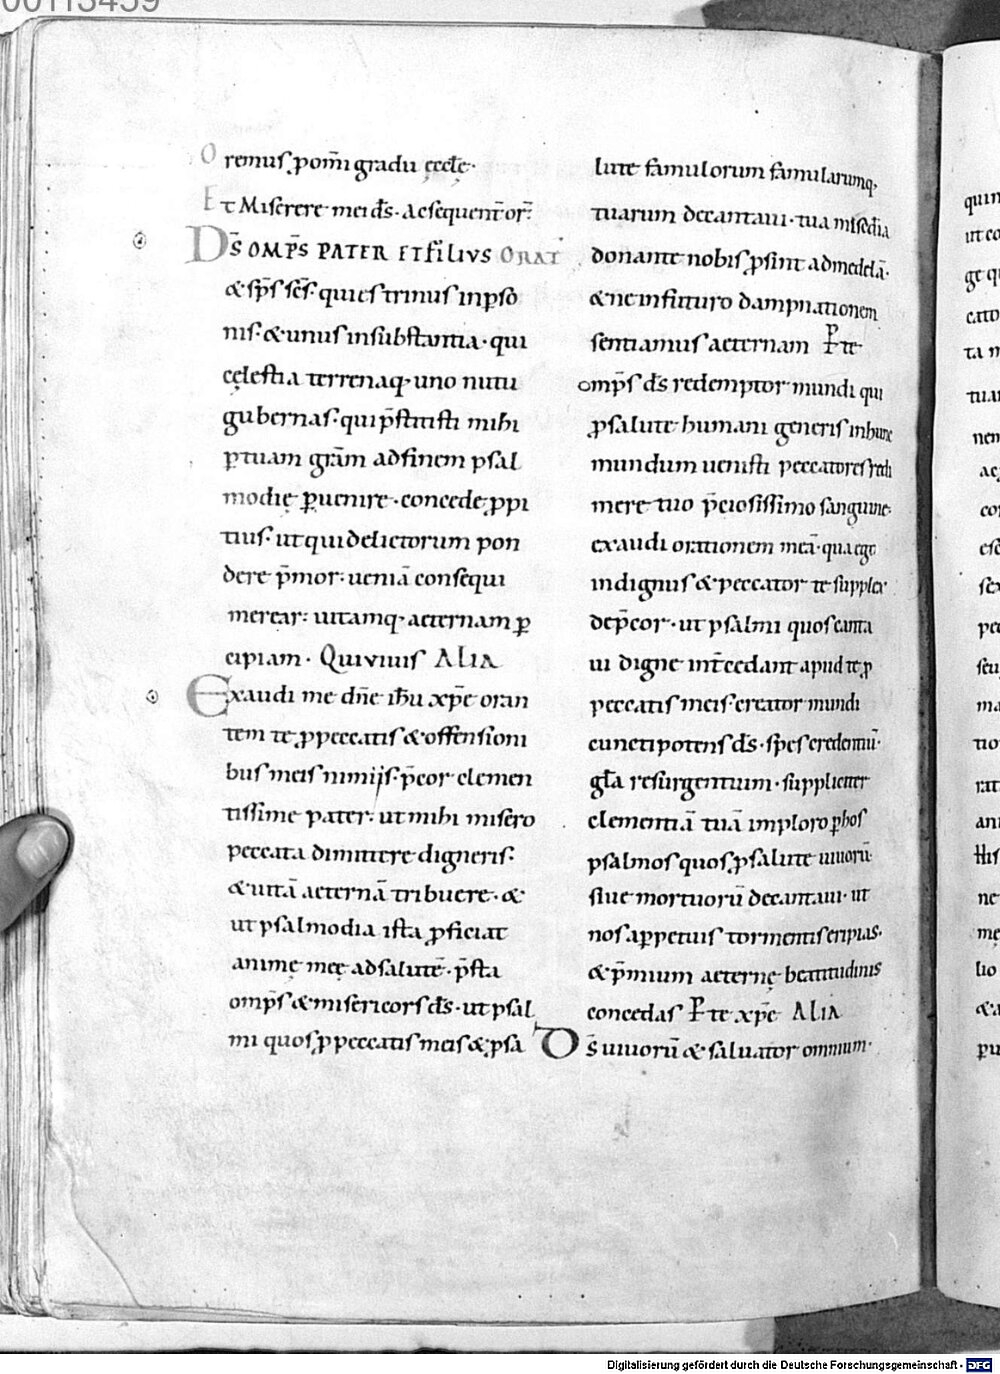 Oremus ꝓ om̄i gradu ęccl̄ę·
Et Miserere mei d̄s· ac sequent̄ or̄:
D̄S OMP̄S PATER ET FILIVS ORAT̄
& sp̄s sc̄s· qui es trinus in ꝑso
nis· & unus in substantia· qui
cęlestia terrenaq· uno nutu
gubernas· qui p̄stitisti mihi
ꝑ tuam grām ad finem psal
modię ꝑuenire· concede ꝓpi
tius· ut qui delictorum pon
dere p̄mor: ueniā consequi
merear: uitamq· aeternam ꝑ
cipiam· Qui viuis ALIA
Exaudi me dn̄e ih̄u xp̄e oran
tem te ꝓ peccatis & offensioni
bus meis nimijs· p̄cor clemen
tissime pater: ut mihi misero
peccata dimittere digneris·
& uitā aeternā tribuere· &
ut psalmodia ista ꝓficiat
animę meę ad salutē· p̄sta
omp̄s & misericors d̄s· ut psal
mi quos ꝓ peccatis meis & ꝓ sa
lute famulorum famularumq·
tuarum decantaui· tua mīsedīa
donante nobis ꝓsint ad medelā·
& ne in futuro dampnationem
sentiamus aeternam P te
omp̄s d̄s redemptor mundi qui
ꝓ salute humani generis in hunc
mundum uenisti peccatores redi
mere tuo p̄ciosissimo sanguine·
exaudi orationem meā· qua ego
indignus & peccator te supplex
dep̄cor· ut psalmi quos canta
ui digne int̄cedant apud te ꝓ
peccatis meis· creator mundi
cunctipotens d̄s· spes credentiū·
gl̄a resurgentium· suppliciter
clementiā tuā imploro ꝑ hos
psalmos quos ꝓ salute uiuorū
siue mortuorū decantaui· ut
nos a ꝑpetuis tormentis eripias·
& p̄mium aeternę beatitudinis
concedas P te xp̄e ALIA
D̄s uiuorū & saluator omnium·
Digitalisierung gefördert durch die Deutsche Forschungsgemeinschaft - DFG